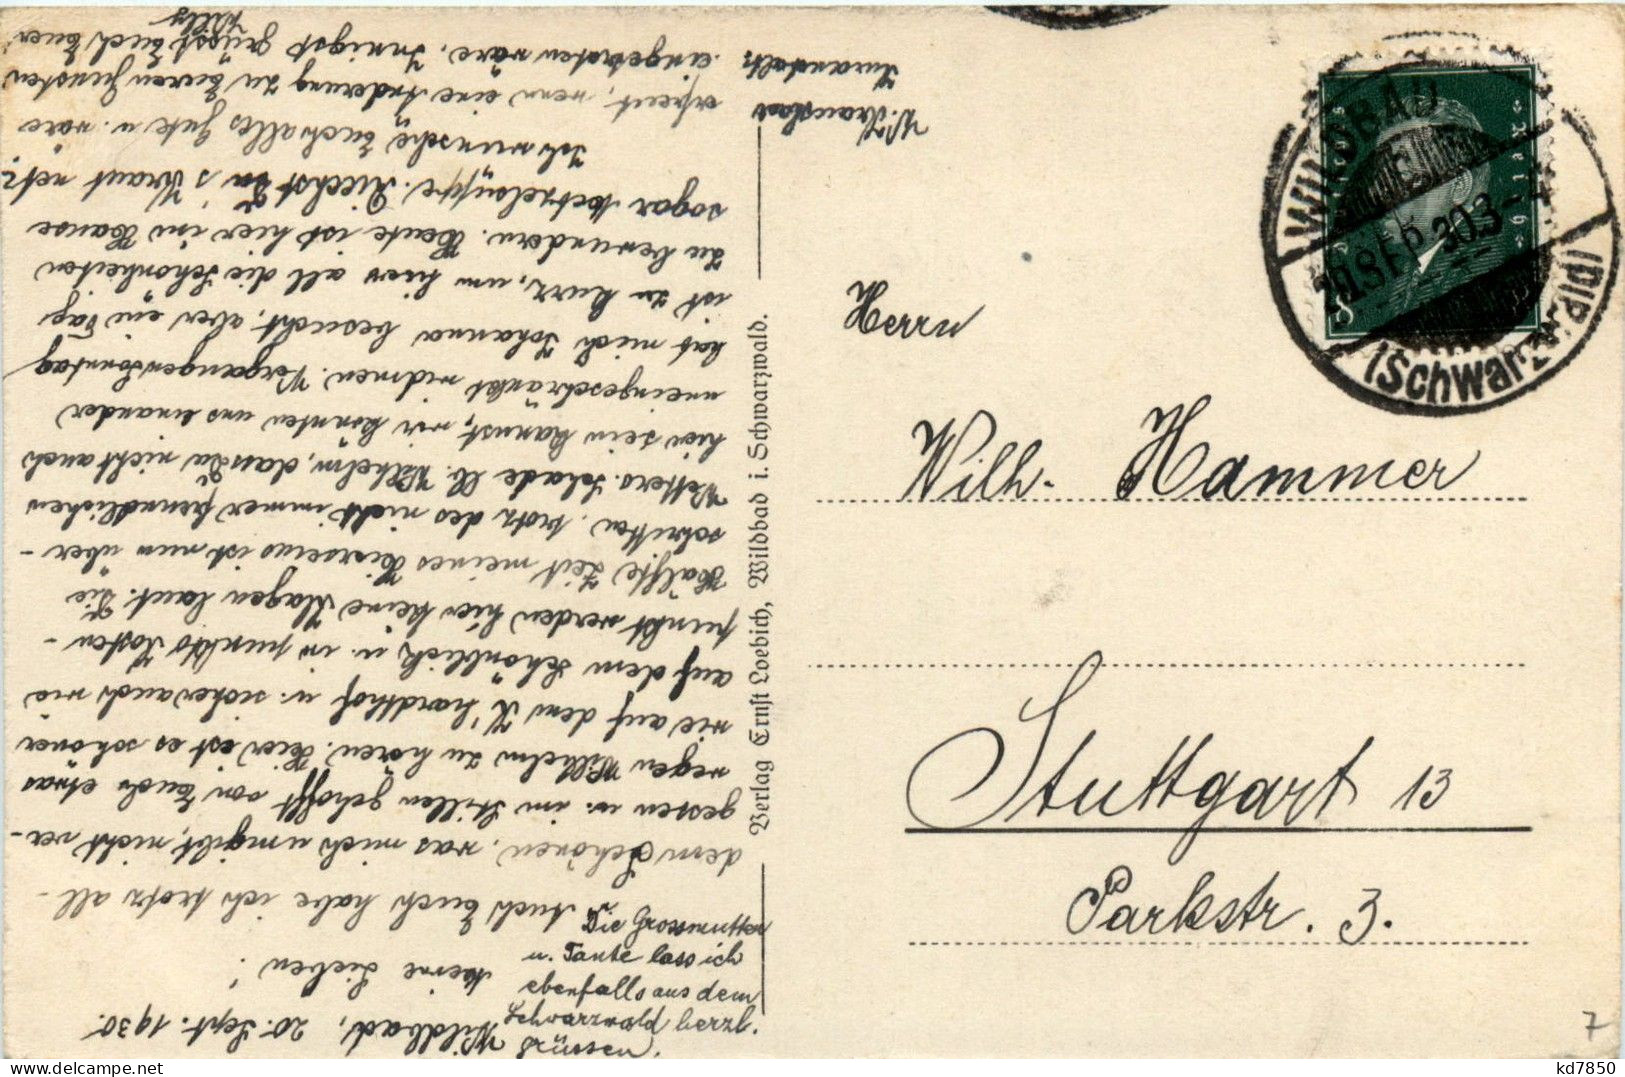 Wildbad, 20. Sept. 1930.
Meine Lieben!
Auch Euch habe ich trotz all-
dem Schönen, was mich umgibt, nicht ver-
gessen u. im Stillen gehofft von Euch etwas
wegen Wilhelm zu hören. Hier ist es schöner
wie auf dem K'hardthof u. sicher auch wie
auf dem Schönblick u. in punkto Kosten-
punkt werden hier keine Klagen laut. Die
Hälfte Zeit meines Hierseins ist nun über-
schritten, trotz des nicht immer freundlichen
Wetters. Schade lb. Wilhelm, dass Du nicht auch
hier sein kannst, wir könnten uns einander
uneingeschränkt widmen. Vergangen Sonntag
hat mich Johanna besucht, aber ein Tag
ist zu kurz, um hier all die Schönheiten
zu bewundern. Heute ist hier im Hause
sogar Metzelsuppe. Riechst Du 's Kraut net?
Ich wünsche Euch alles Gute u. wäre
erfreut, wenn eine Änderung zu Euren Gunsten
eingetreten wäre. Innigst grüsst Euch Euer
Willy
Die Grossmutter
u. Tante lass ich
ebenfalls aus dem
Schwarzwald herzl.
grüssen.
Verlag Ernst Loebich, Wildbad i. Schwarzwald.
WILDBAD
20.SEP.30.3-4
(Schwarzw.)
Deutsches Reich
8
Herrn
Wilh. Hammer
Stuttgart 13
Parkstr. 3.
7
kd7850